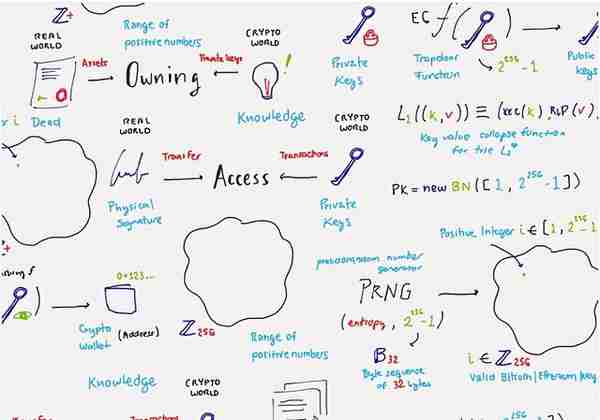 Z+
Range of
positive numbers
REAL
WORLD
CRYPTO
WORLD
Assets
Owning
Private keys
!
Dead
Knowledge
Private
Keys
EC f(
)
Trapdoor
Function
2^256-1
Public
Keys
REAL
WORLD
CRYPTO
WORLD
Transfer
Access
Transactions
Physical
Signature
Private
Keys
L₁((k,v)) ≡ (HEC(k), RLP(v)
Key value collapse function
for trie L₁
PK = new BN([1, 2^256-1])
Positive Integer i ∈ [1, 2^256-1
pseudorandom number
generator
PRNG
(entropy, 2^256-1)
B32
Byte sequence
of 32 bytes
i ∈ Z256
Valid Bitcoin | Ethereum key
0x123...
Crypto
Wallet
(Address)
Z256
Range of
positive numbers
Knowledge
CRYPTO
WORLD